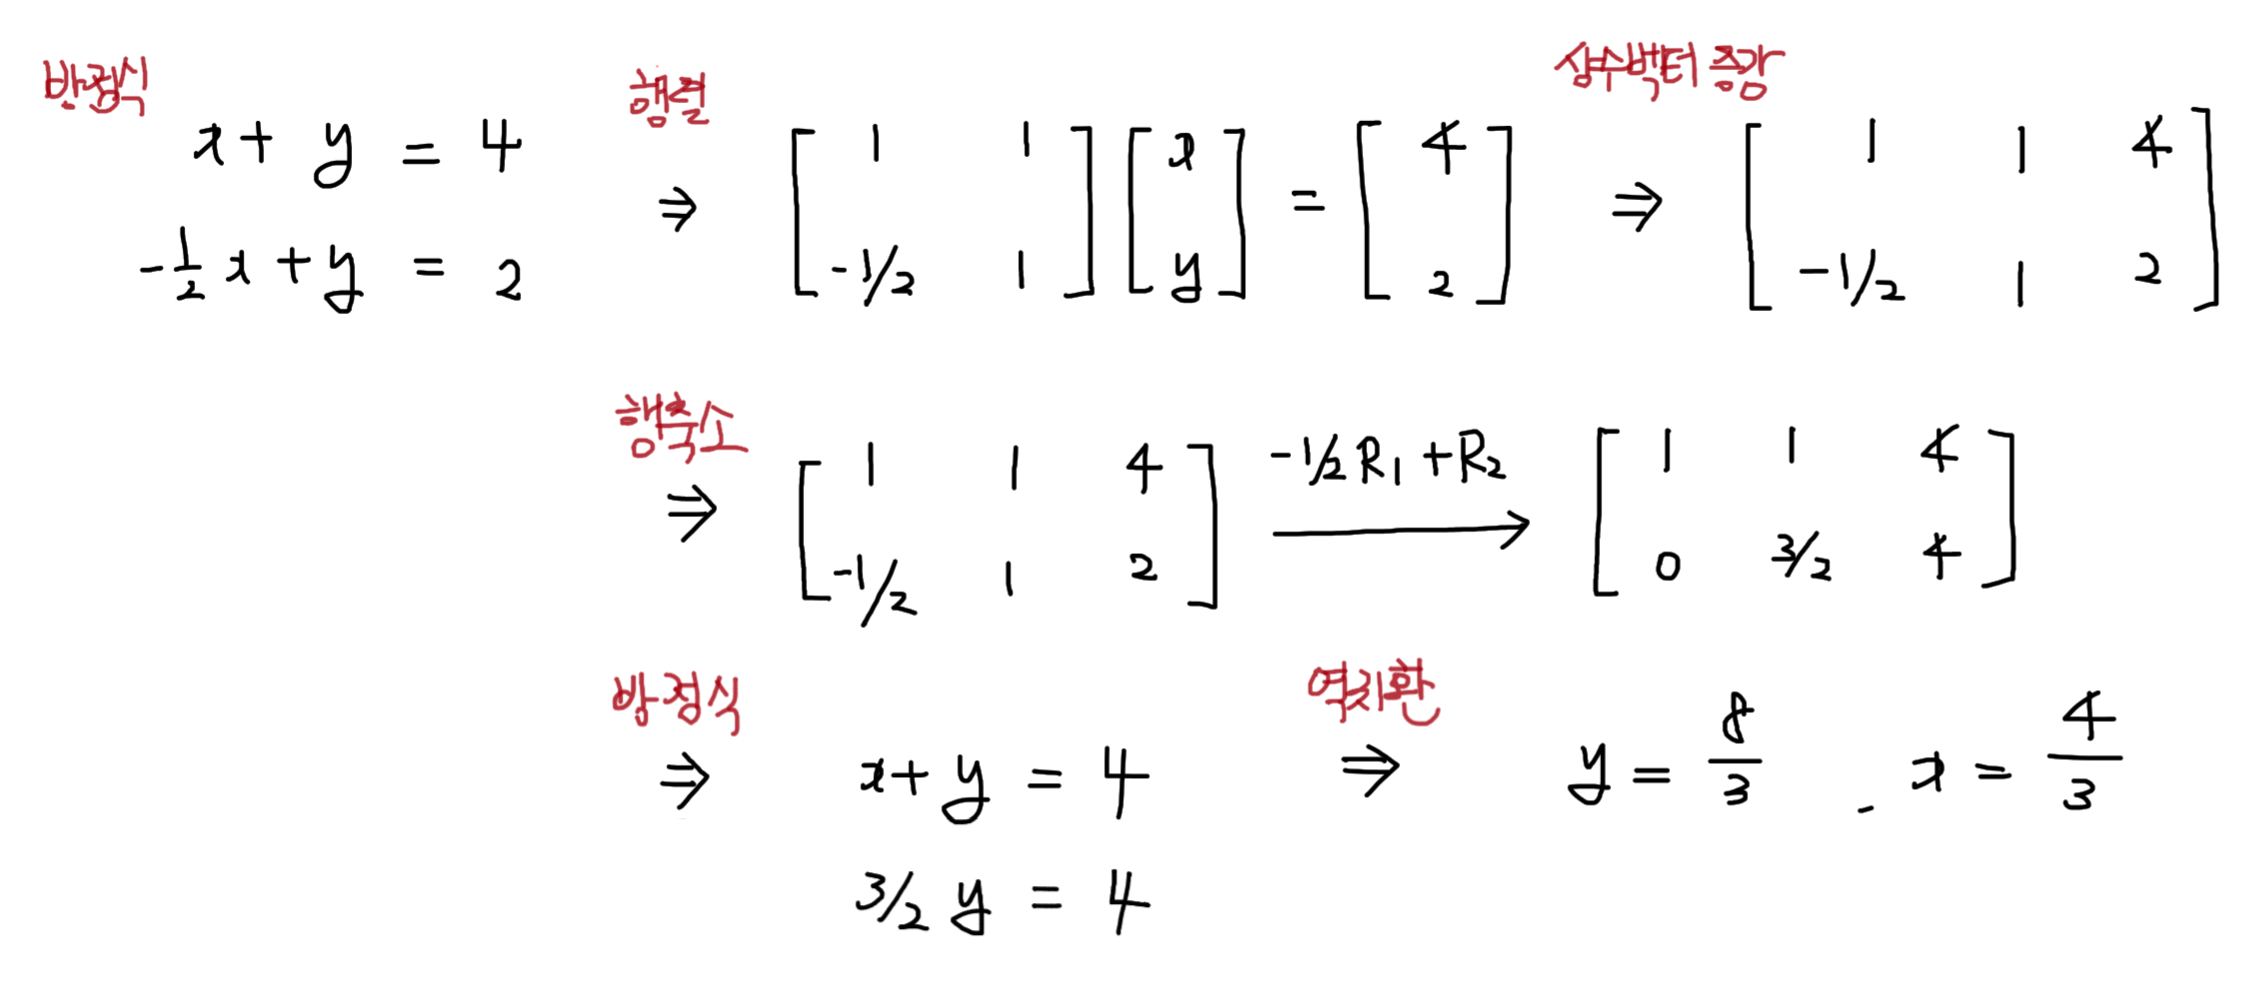 방정식
x + y = 4
-1/2 x + y = 2
행렬
⇒ [ 1 1 ; -1/2 1 ] [ x ; y ] = [ 4 ; 2 ]
상수벡터 증강
⇒ [ 1 1 4 ; -1/2 1 2 ]
행축소
⇒ [ 1 1 4 ; -1/2 1 2 ] -1/2 R₁ + R₂ → [ 1 1 4 ; 0 3/2 4 ]
방정식
⇒ x + y = 4
3/2 y = 4
역치환
⇒ y = 8/3 , x = 4/3